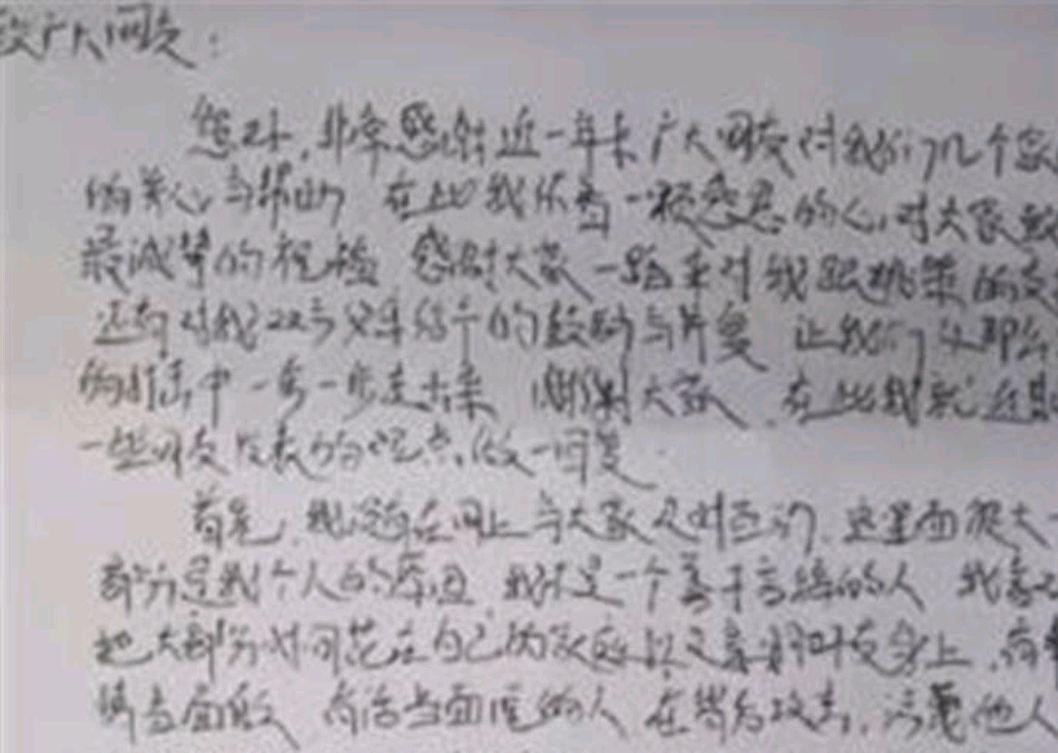 致广大网友：
您好，非常感谢近一年来广大网友对我们几个家
的关心与帮助 在此我怀着一颗感恩的心，对大家致
最诚挚的祝福 感谢大家一路来对我跟姚策的支
还有对我双方父母给予的鼓励与 让我们从那么
的打击中一步一步走出来 谢谢大家，在此我就近期
一些网友发表的观点，做一回复。
首先，我没有在网上与大家及时互动，这里面很大一
部分是我个人的原因，我不是一个善于言辞的人 我喜
把大部分时间花在自己的家庭以及亲朋好友身上，有
情当面 有话当面 的人 在背后攻击，污蔑他人